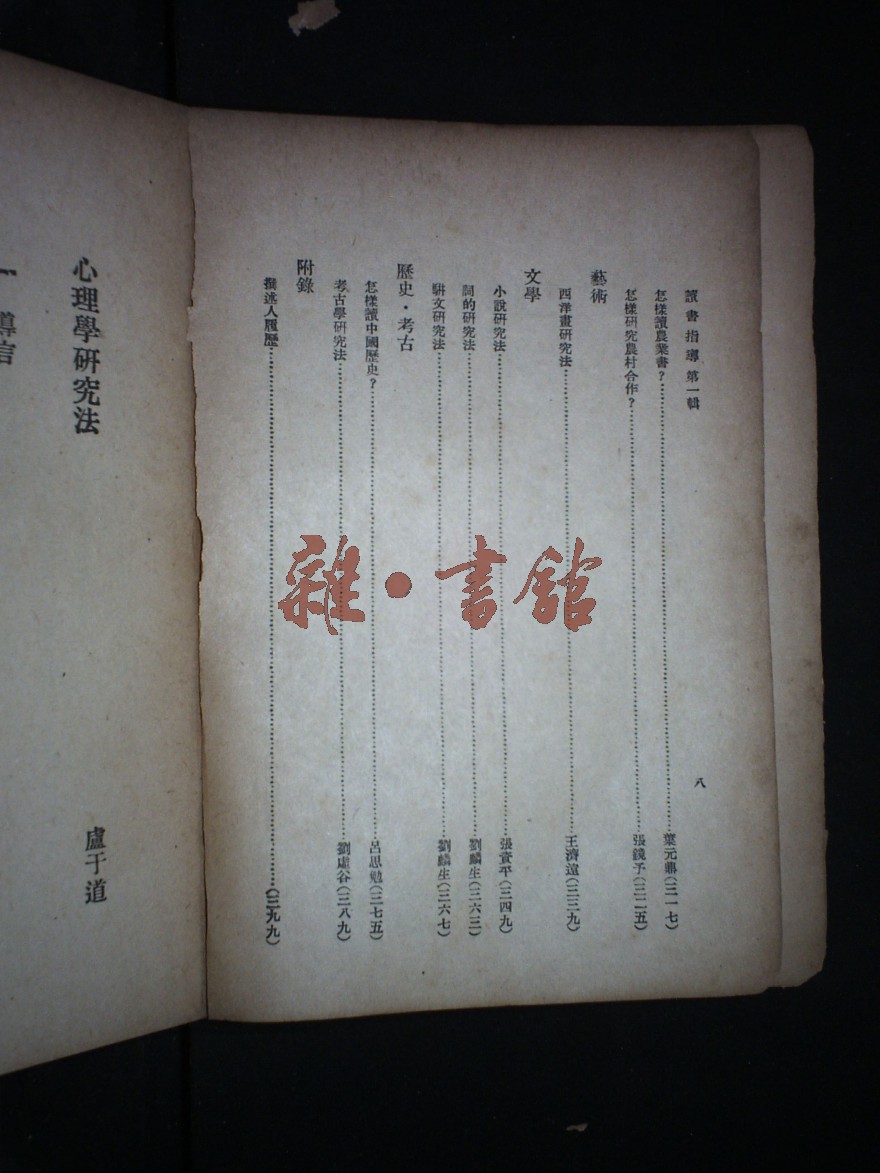 讀書指導第一輯
八
怎樣讀農業書？……葉元鼎（三一七）
怎樣研究農村合作？……張鏡予（三二五）
藝術
西洋畫研究法……王濟遠（三三九）
文學
小說研究法……張資平（三四九）
詞的研究法……劉麟生（三六三）
駢文研究法……劉麟生（三六七）
歷史·考古
怎樣讀中國歷史？……呂思勉（三七五）
考古學研究法……劉虛谷（三八九）
附錄
撰述人履歷……（三九九）
心理學研究法
盧于道
一 導言
雜·書館